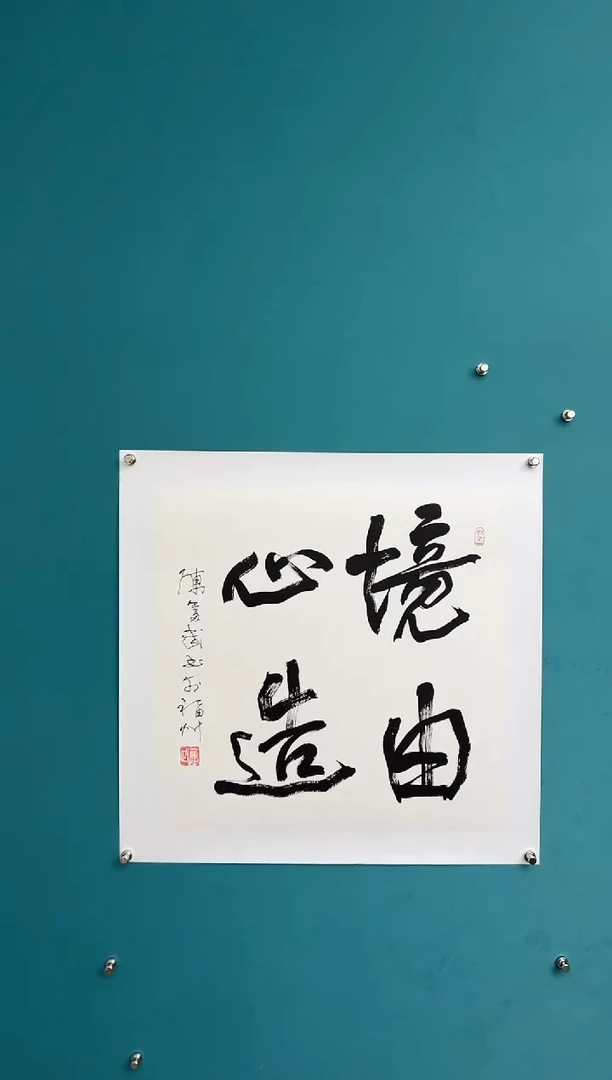 境由
心造
陳奮武書於福州